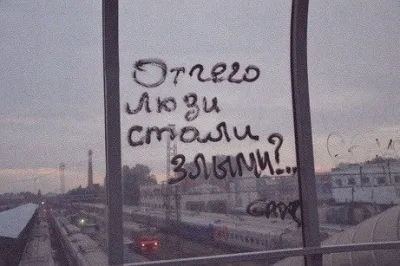 Отчего
люди
стали
злыми?...